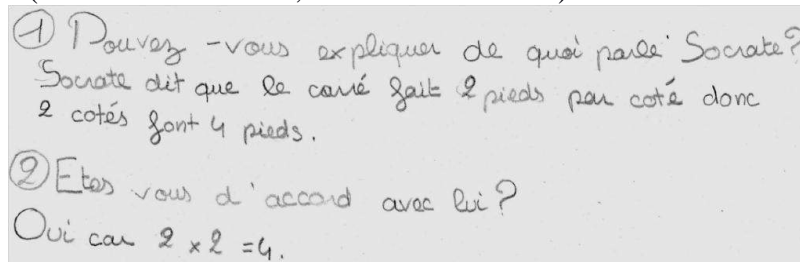 ① Pouvez-vous expliquer de quoi parle Socrate?
Socrate dit que le carré fait 2 pieds par coté donc
2 cotés font 4 pieds.
② Etes vous d'accord avec lui?
Oui car 2 x 2 = 4.